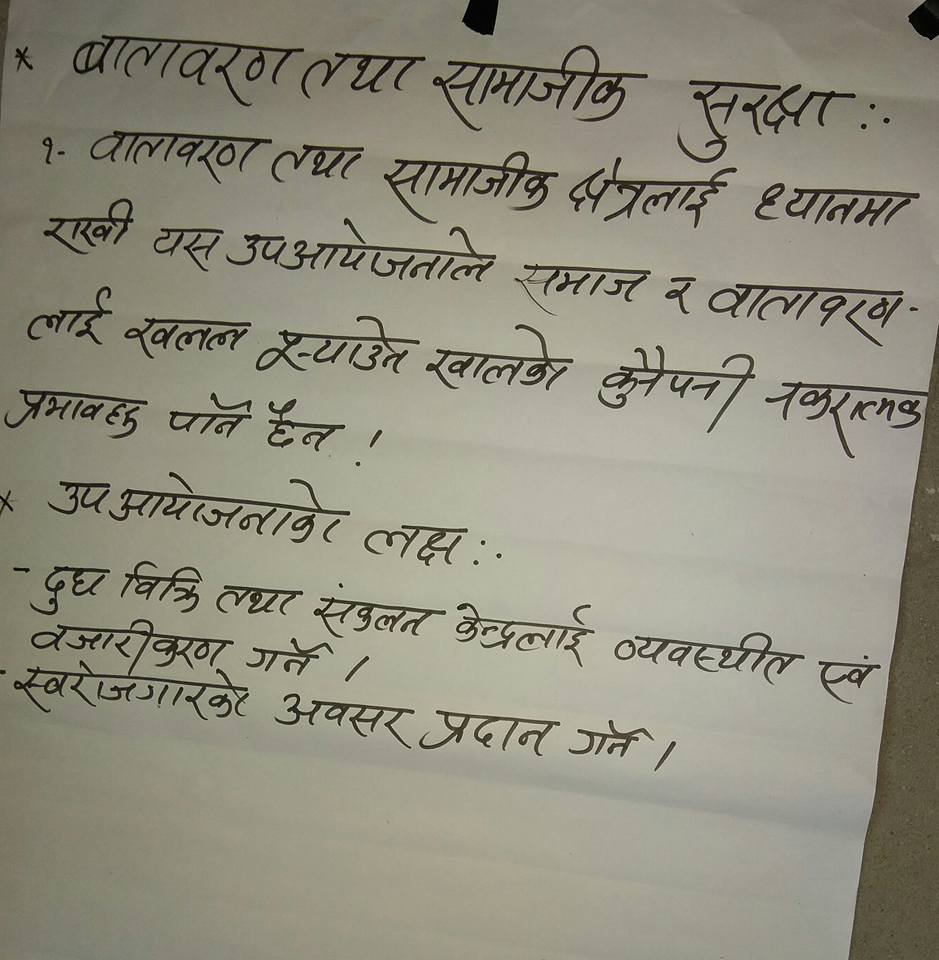 * बातावरण तथा सामाजीक सुरक्षा :.
१- वातावरण तथा सामाजीक क्षेत्रलाई ध्यानमा
राखी यस उपआयोजनाले समाज र वातावरण-
लाई खलल पुर्‍याउने खालको कुनैपनी नकरात्मक
प्रभावहरु पार्ने छैन ।
* उपआयोजनाको लक्ष :.
- दुध विक्रि तथा संकलन केन्द्रलाई व्यवस्थीत एवं
वजारीकरण गर्ने ।
- स्वरोजगारको अवसर प्रदान गर्ने ।